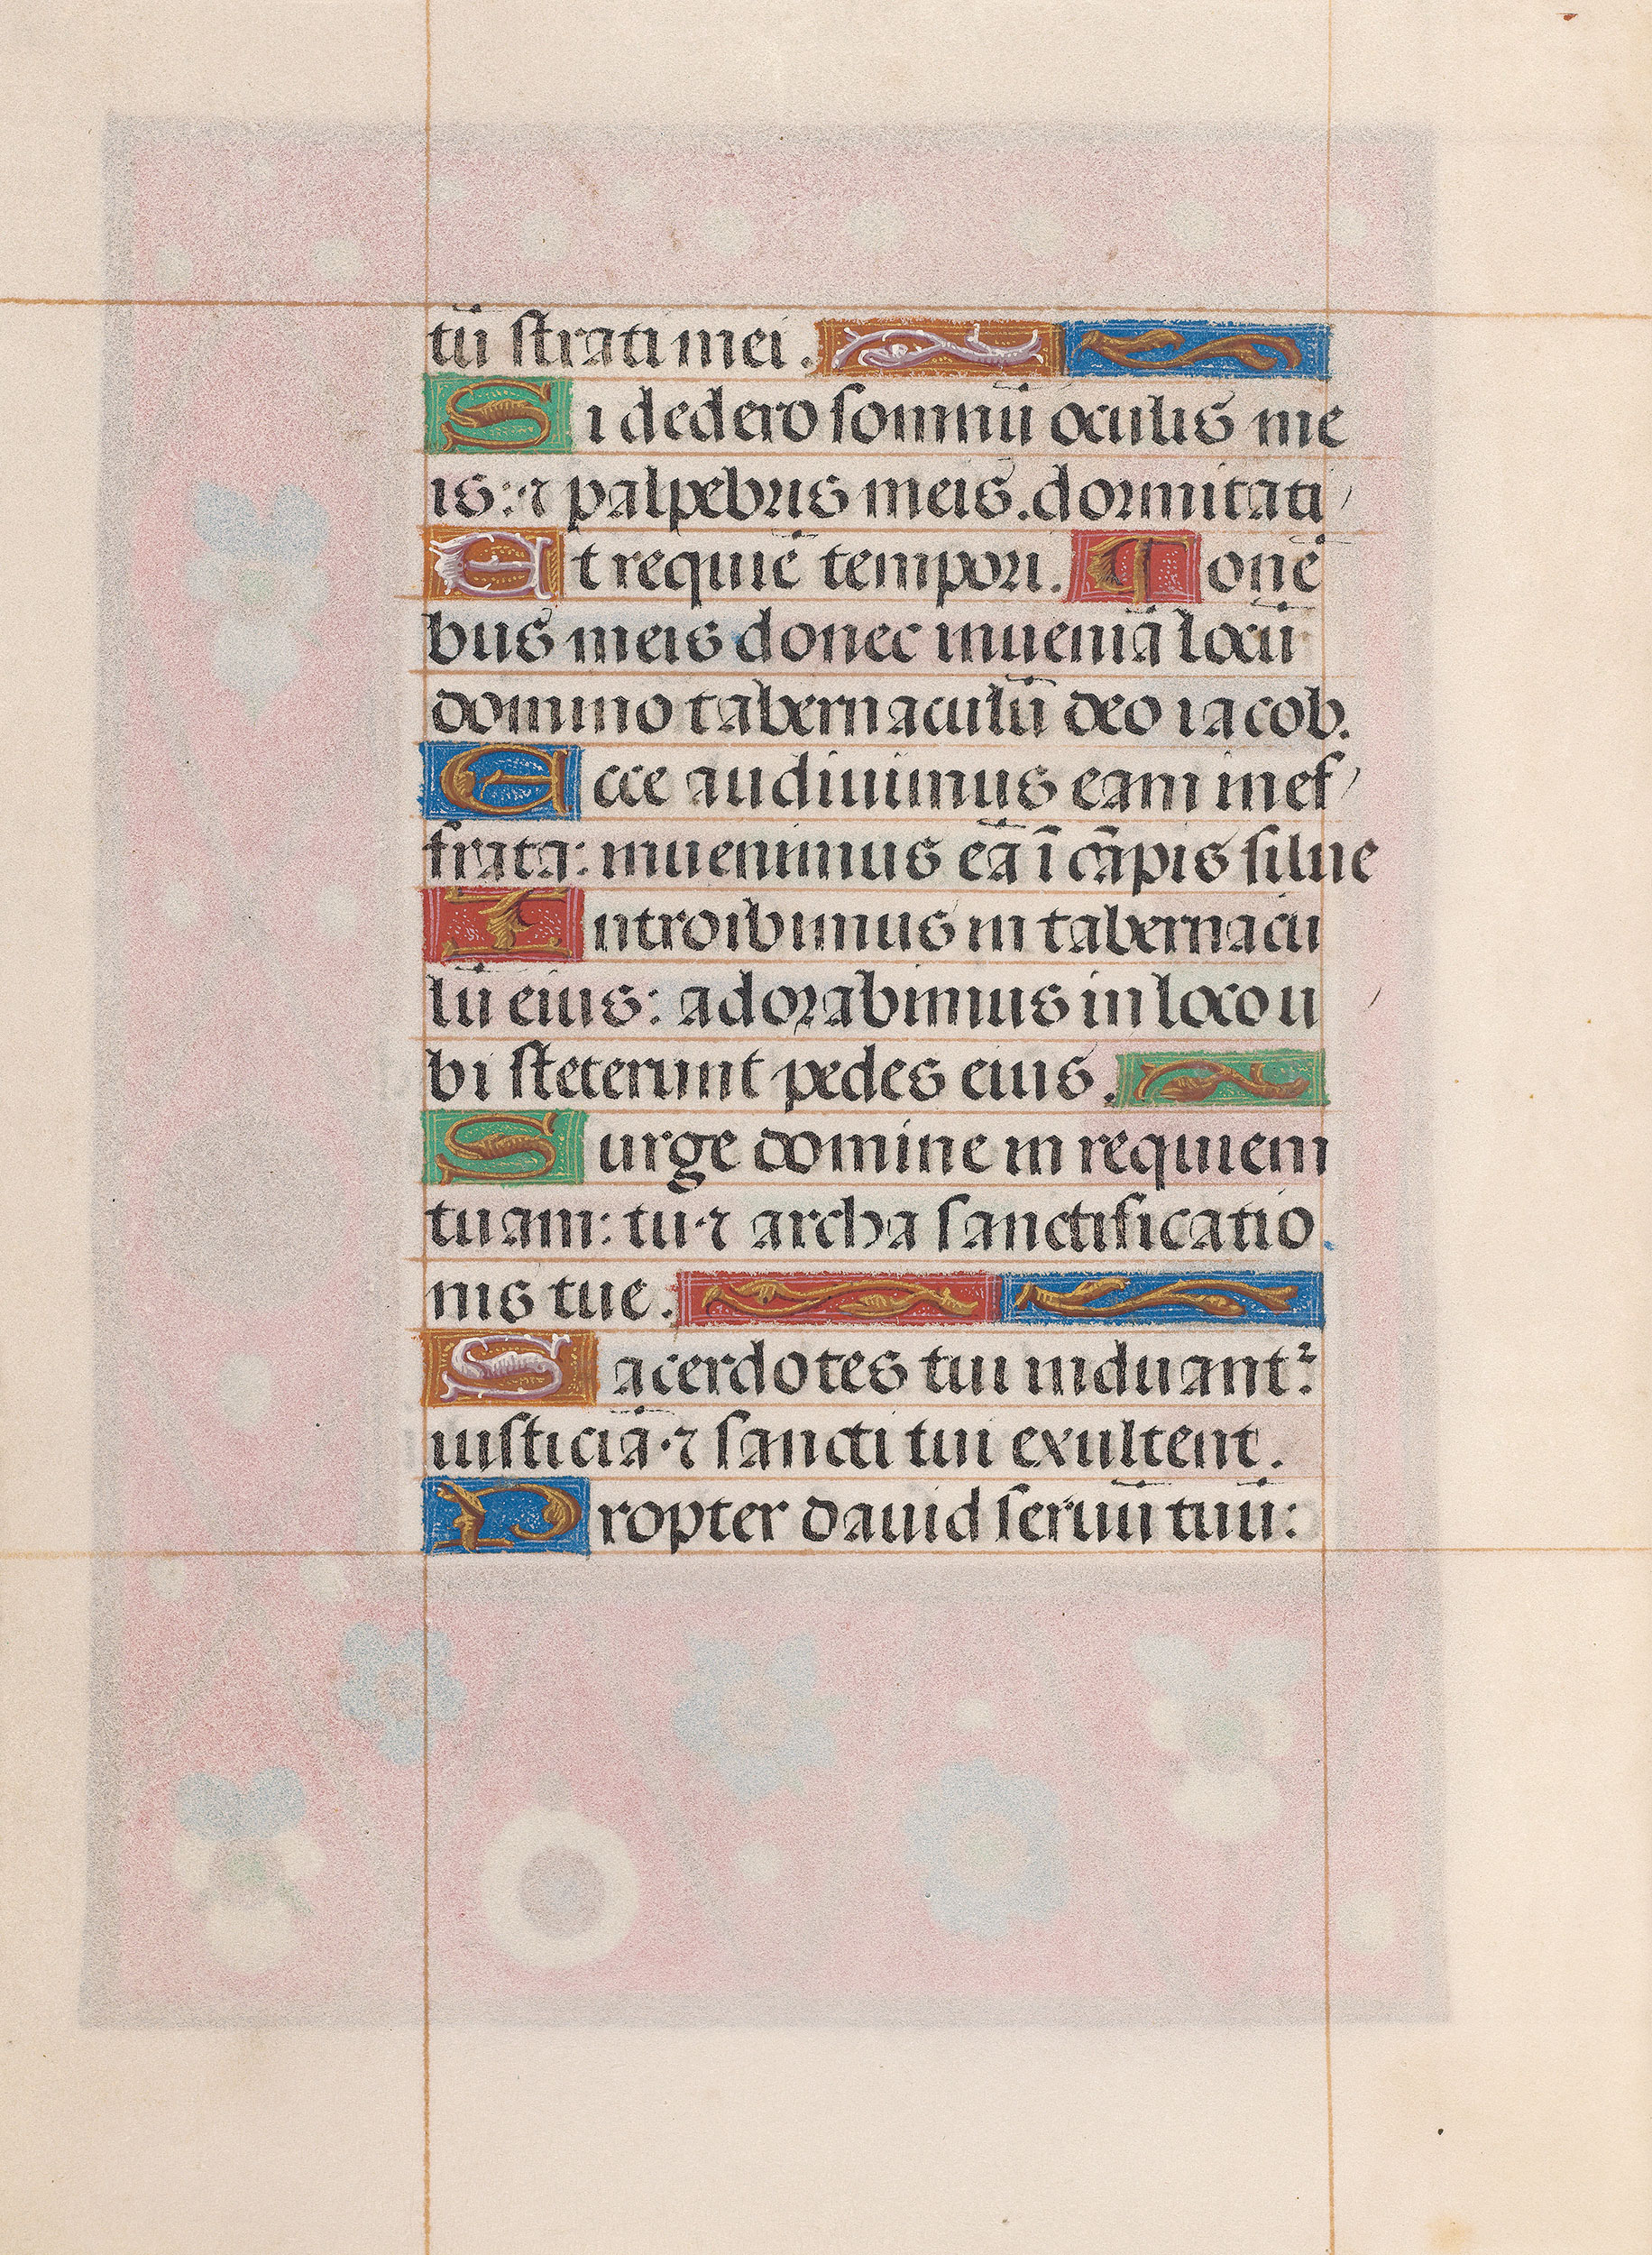 tū strati mei.
Si dedero somnū oculis me
is: ⁊ palpebris meis. dormitati
Et requiē tempori. Tonē
bus meis donec inueniā locū
domino tabernaculū deo iacob.
Ecce audiuimus eam in ef
frata: inuenimus eā ī cāpis silue
Introibimus in tabernacu
lū eius: adorabimus in loco u
bi steterunt pedes eius.
Surge domine in requiem
tuam: tu ⁊ archa sanctificatio
nis tue.
Sacerdotes tui induant᷑
iusticiā ⁊ sancti tui exultent.
Propter dauid seruū tuū: